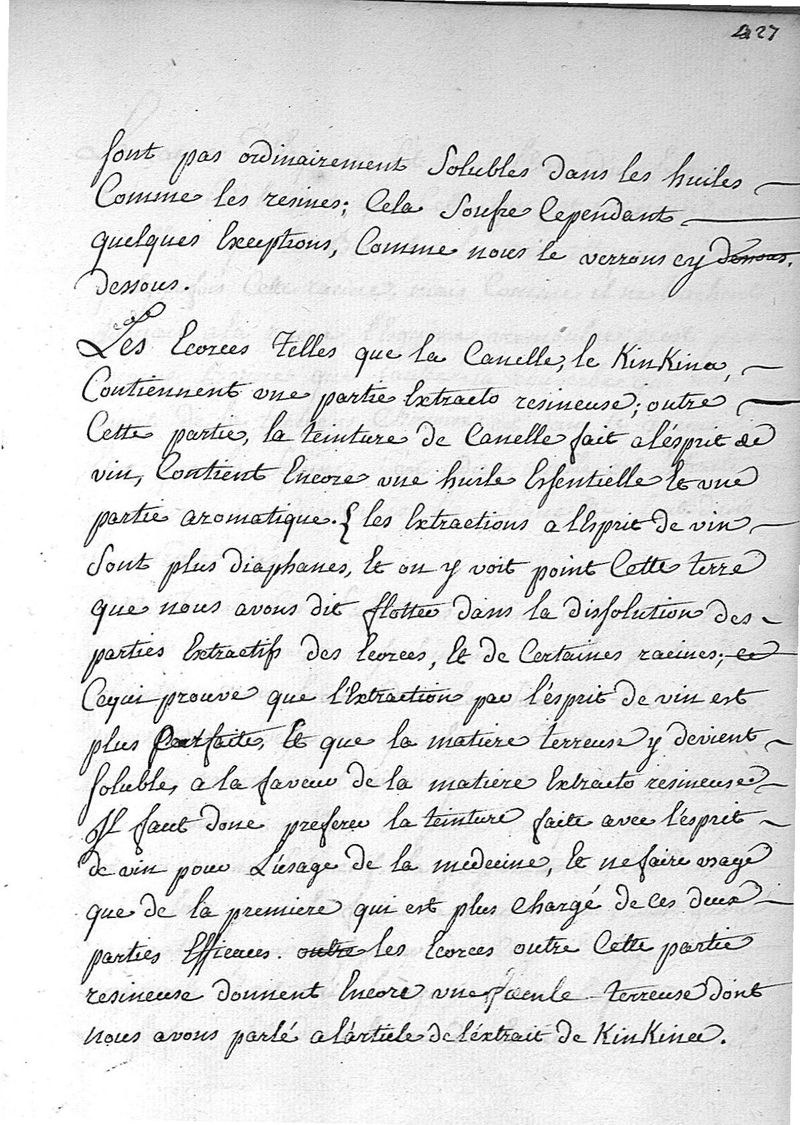 427
sont pas ordinairement Solubles dans les huiles
Comme les resines; Cela Soufre Cependant
quelques Exceptions, Comme nous le verrons cy dessous.
dessous.
Les Ecorces Telles que la Canelle, le KinKina,
Contiennent une partie Extracto resineuse; outre
Cette partie, la teinture de Canelle fait a l'ésprit de
vin, Contient Encore une huile Essentielle Et une
partie aromatique. { les Extractions a l'Esprit de vin
Sont plus diaphanes, Et on y voit point Cette terre
que nous avons dit flotter dans la dissolution des
parties Extractifs des Ecorces, Et de Certaines racines; ce
Cequi prouve que l'Extraction par l'ésprit de vin est
plus parfaite, Et que la matiere terreuse y devient
soluble, a la faveur de la matiere Extracto resineuse
Il faut donc preferer la teinture faite avec l'ésprit
de vin pour L'usage de la medecine, Et ne faire usage
que de la premiere qui est plus chargé de ces deux
parties Efficaces. outre les Ecorces outre Cette partie
resineuse donnent Encore une fécule terreuse dont
nous avons parlé a l'article de l'éxtrait de KinKina.